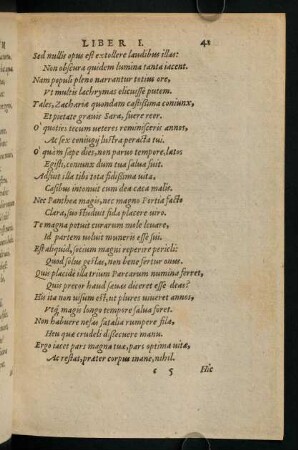 LIBER I. 41
Sed nullis opus est extollere laudibus illas:
Non obscura quidem lumina tanta iacent.
Nam populi pleno narrantur totius ore,
Vt multis lachrymas elicuisse putem.
Tales, Zacharia quondam castissima coniunx,
Et pietate grauis Sara, fuere reor.
O' quoties tecum veteres reminisceris annos,
Ac sex coniugij lustra peracta tui.
O' quàm sæpe dies, non paruo tempore, latos
Egisti, coniunx dum tua salua fuit.
Adfuit illa tibi tota fidissima vita,
Casibus intonuit cum dea cæca malis.
Nec Panthea magis, nec magno Portia facto
Clara, suo studuit fida placere viro.
Te magna potuit curarum mole leuare,
Id partem voluit muneris esse sui.
Est aliquid, socium magni reperire pericli:
Quod solus gestas, non bene fertur onus.
Quis placidè illa trium Parcarum numina ferret,
Quis precor haud sæuas diceret esse deas?
His ita non visum est, ut plures uiueret annos,
Vtq́; magis longo tempore salua foret.
Non habuere nefas fatalia rumpere fila,
Heu quæ crudeli dissecuere manu.
Ergo iaces pars magna tuæ, pars optima vitæ,
Ac restat, præter corpus inane, nihil.
c 5 Hic